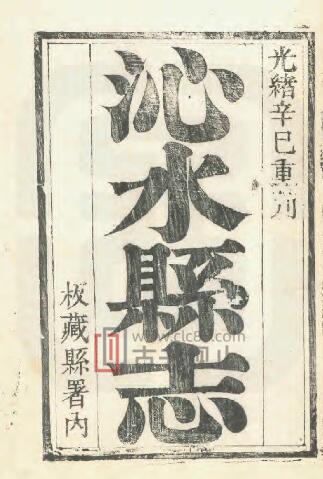 光緒辛巳重刊
沁水縣志
板藏縣署內
www.clc8.com